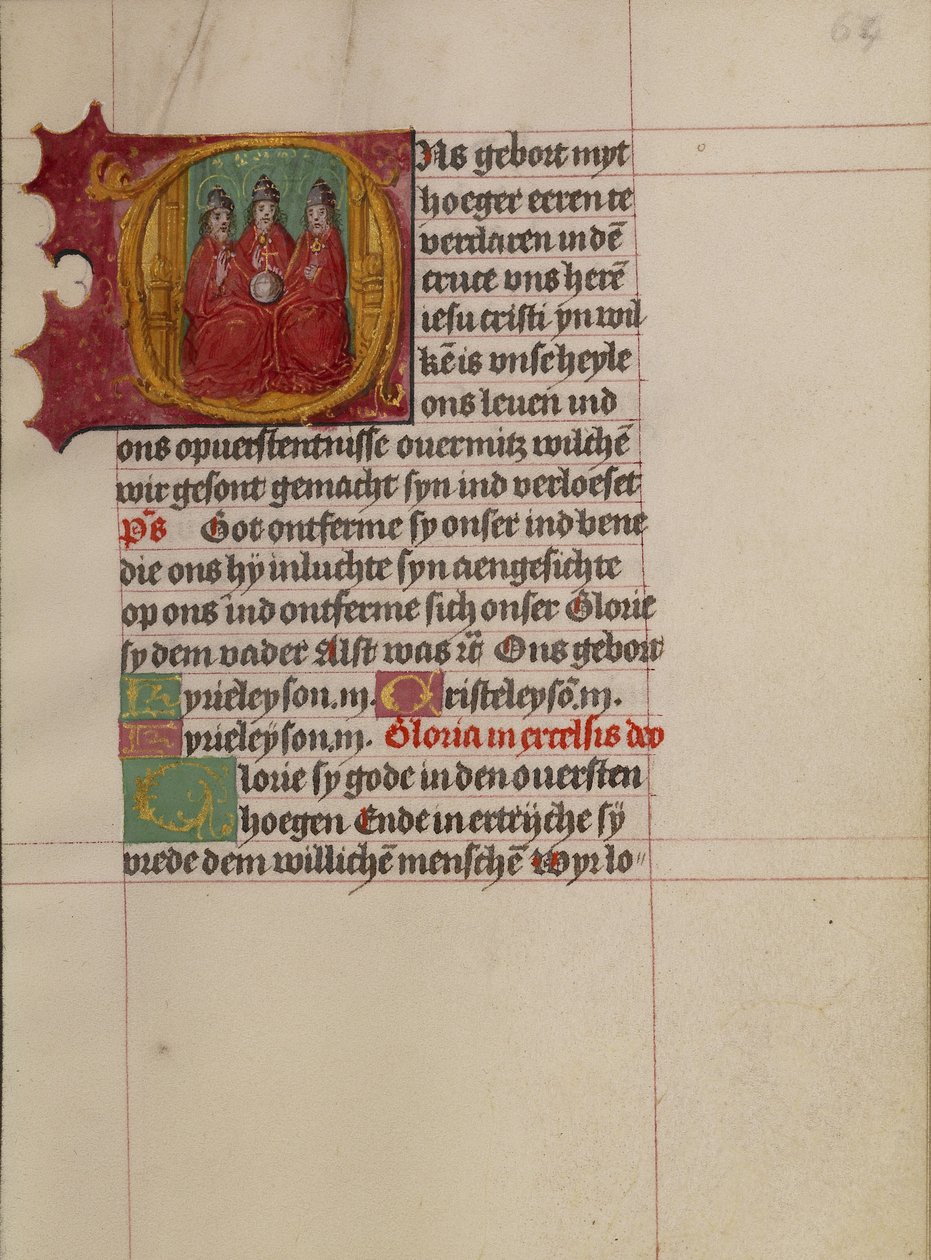 64
ONs gebort myt
hoeger eeren te
verclaren in dē
cruce vns herē
iesu cristi yn wil
kē is vnse heyle
ons leuen ind
ons opuerstentnisse ouermitz wilchē
wir gesont gemacht syn ind verloeset
Ps̄ Got ontferme sy onser ind bene
die ons hÿ inluchte syn aengesichte
op ons ind ontferme sich onser Glorie
sy dem vader Alst was Ons gebort
Kyrieleyson.iij. Cristeleysō.iij.
Kyrieleÿson.iij. Gloria in excelsis deo
Glorie sy gode in den ouersten
hoegen Ende in ertrijche sÿ
vrede dem willichē menschē Wyr lo〃